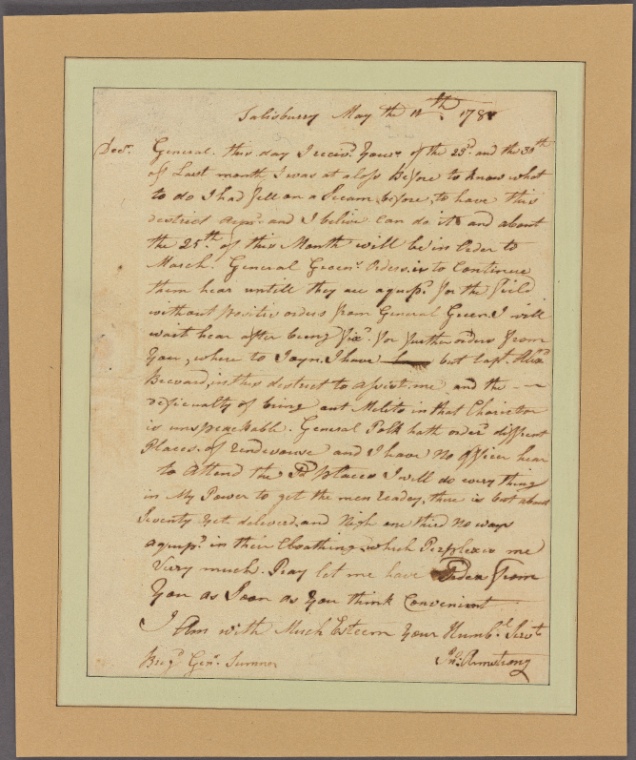 Salisburry May the 11th 1781
Decr. General. this day I receivd yours of the 23d. and the 30th
of Last month I was at a loss before to know what
to do I had fell on a Sceam before, to have this
district and I belive can do it and about
the 25th of this Month will be in Order to
March. General Orders is to Continue
them hear untill they are for the field
without positive orders from General Green I will
wait hear after being fixd. for further orders from
you, where to Joyn. I have but Capt. Alexr
Brevard, in this district to assist me and the
of being out Melitia in that
is unspeackable. General Polk hath orderd different
Places of and I have no officer hear
to Attend the Sd places I will do every thing
in My Power to get the men ready, there is but about
Seventy yet delivred, and Nigh one third no ways
in their Cloathing, which Perplexes me
Very much. Pray let me have Orders from
you as Soon as you think Convenient
I Am with Much Esteem your Humbe. Servt
Brigr Genl. Sumner Jno. Armstrong